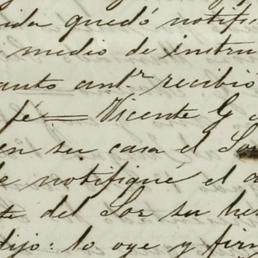 ida quedó notific
medio de instru
auto ant.r recibió
fe = Vicente G
en su casa el Sor
e notifiqué el a
te del Sor su her
dijo: lo oye y firm